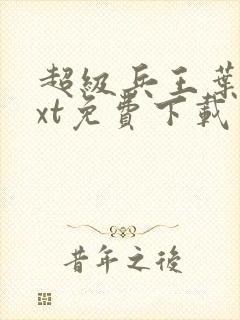 超級兵王葉
xt免費下載
昔年之後